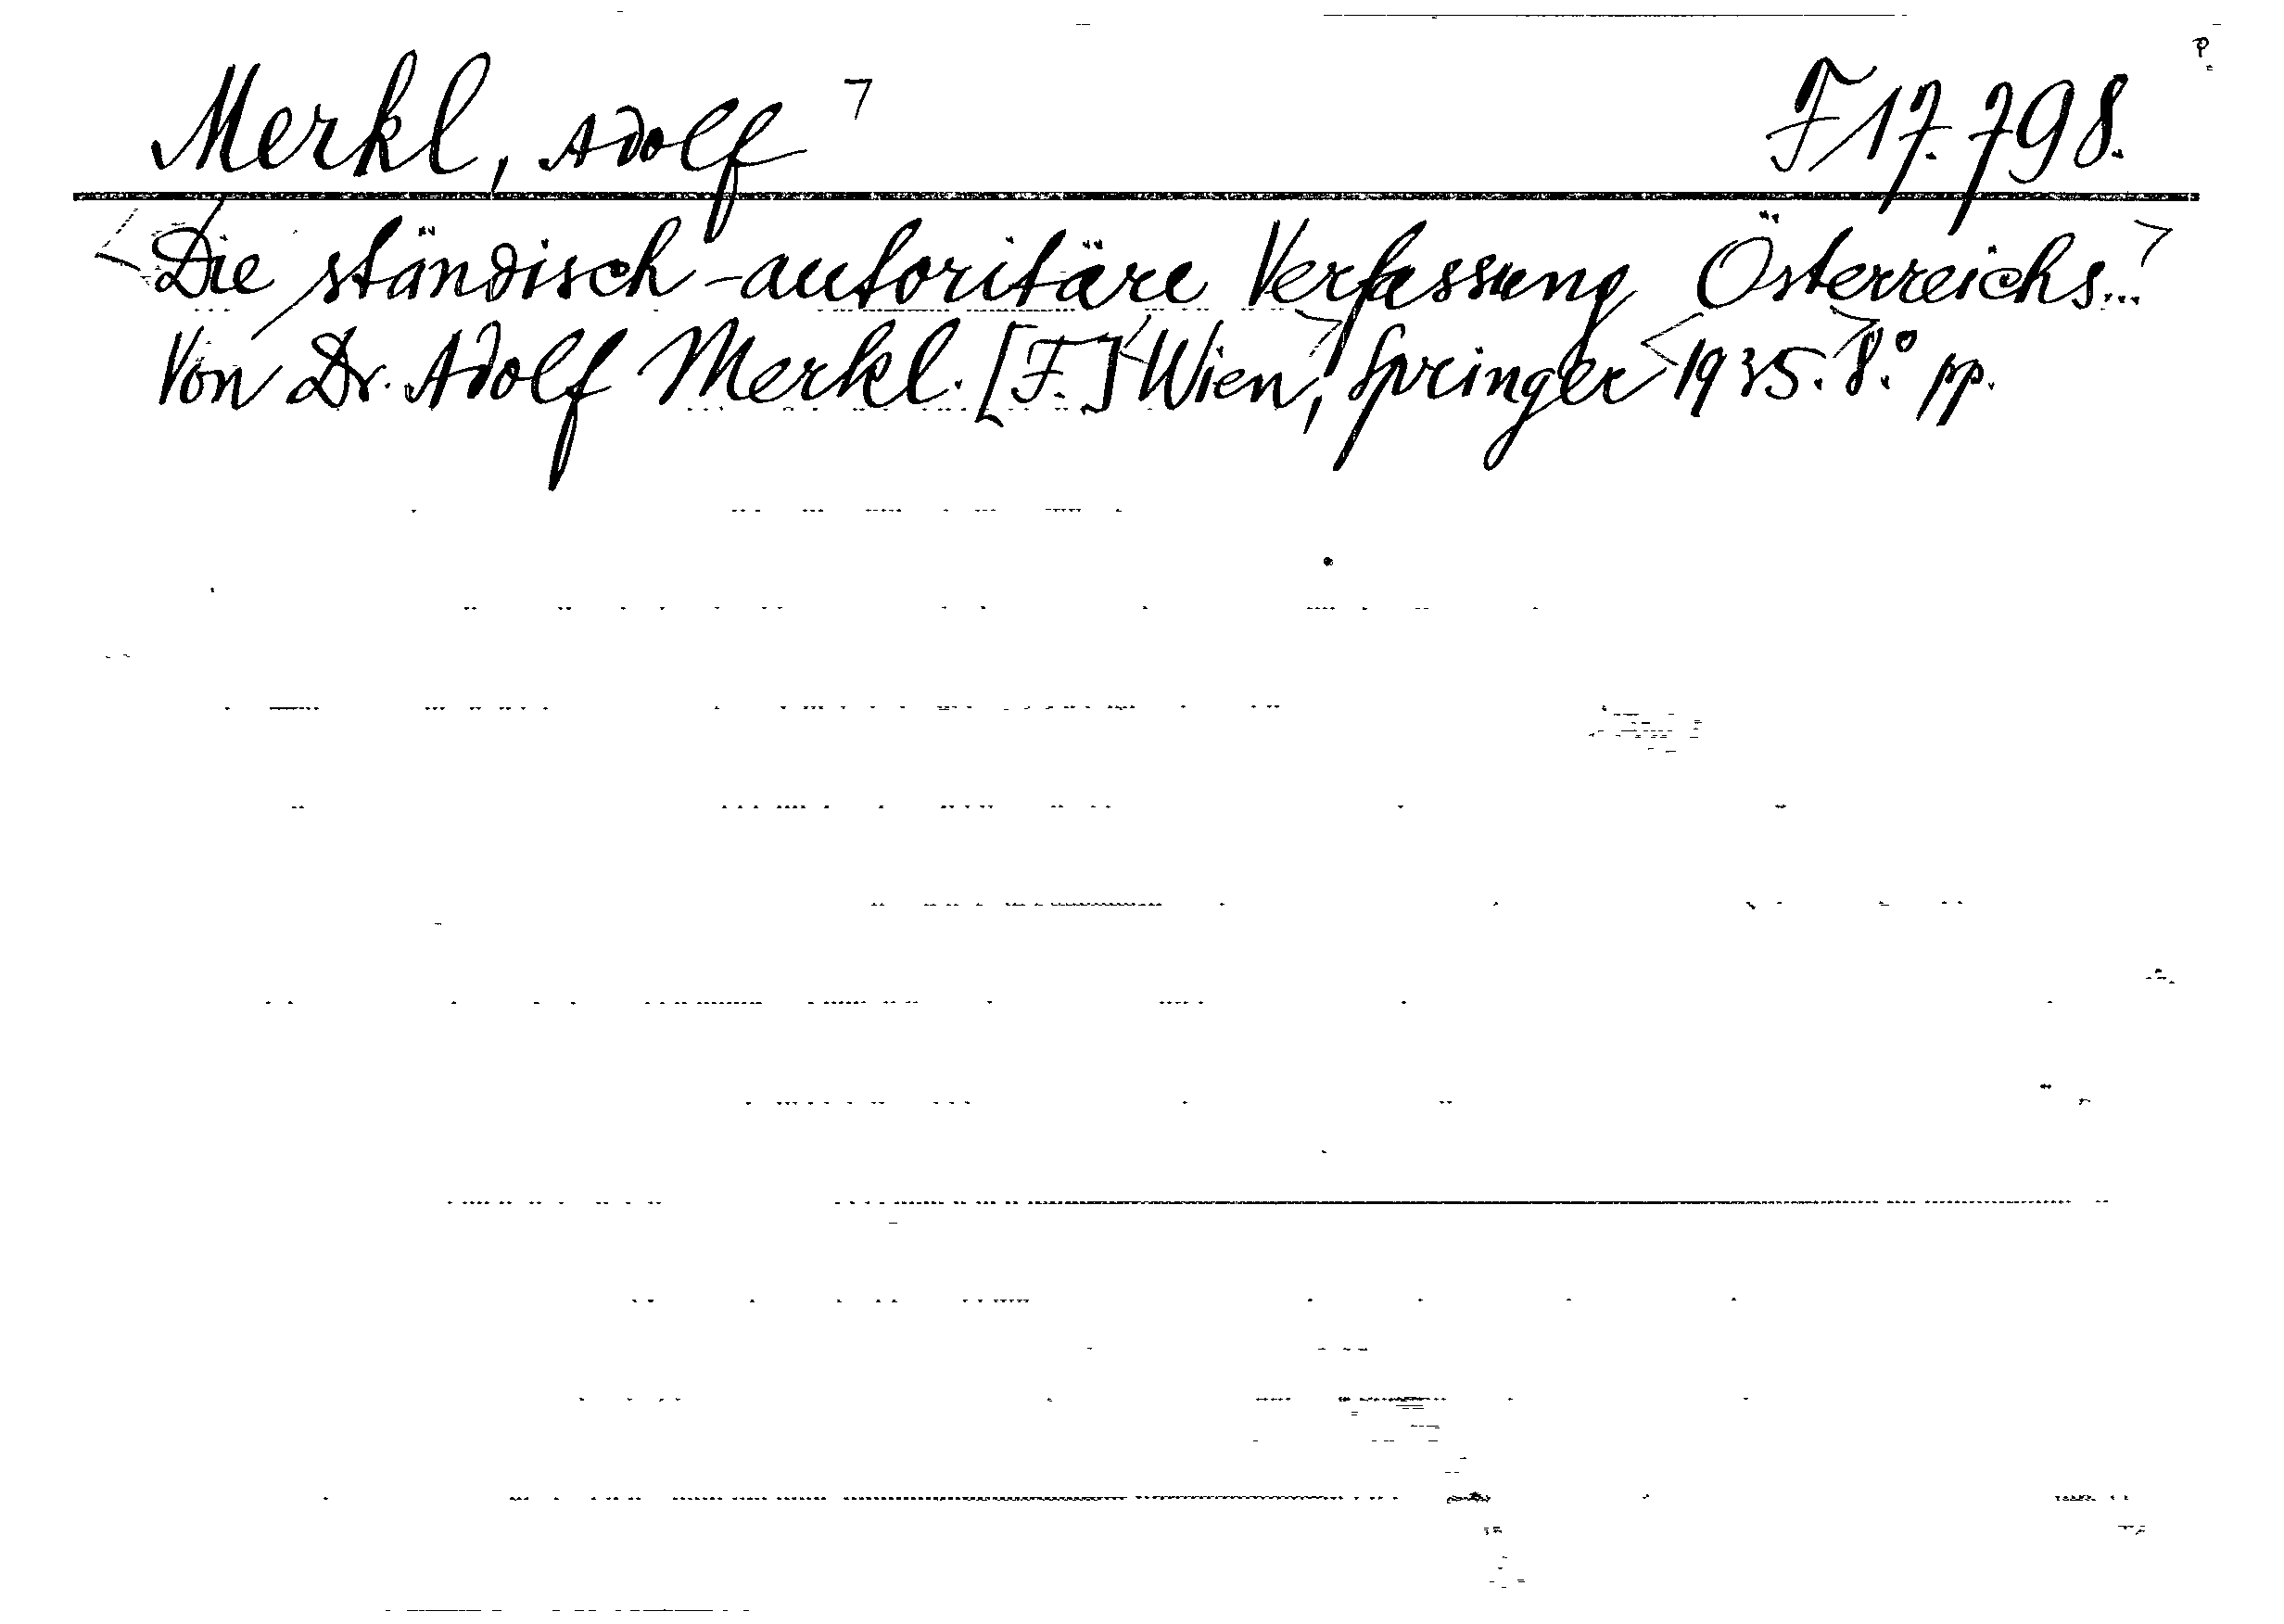 Merkl, Adolf F 17.798.
Die ständisch-autoritäre Verfassung Österreichs...
Von Dr. Adolf Merkl. [F.] Wien, Springer 1935. 8.° pp.